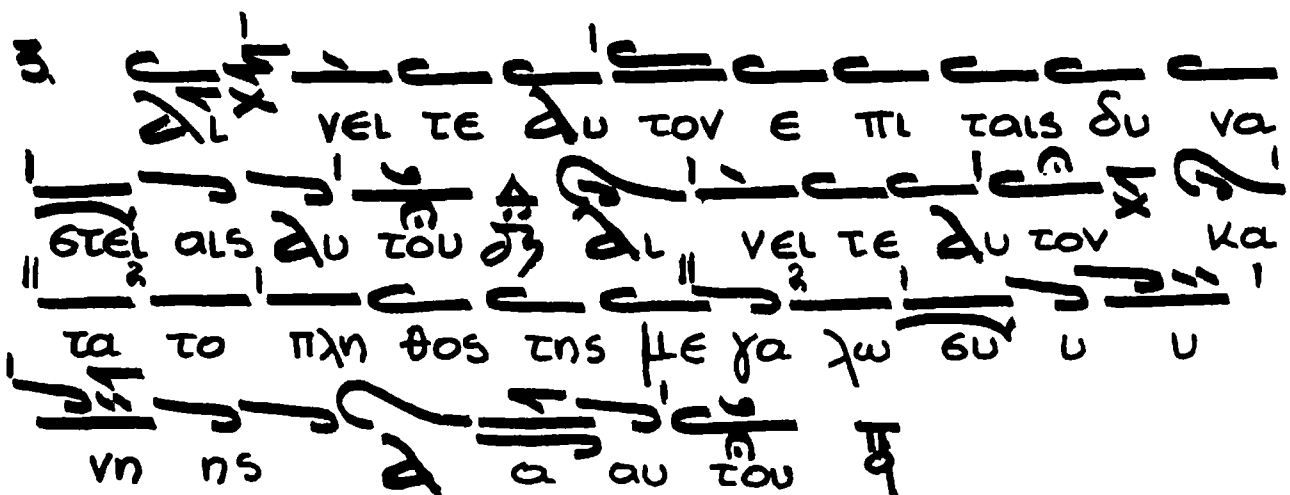 3. αι νει τε αυ τον ε πι ταις δυ να
στει αις αυ του αι νει τε αυ τον κα
τα το πλη θος της με γα λω συ υ υ
νη ης α α αυ του